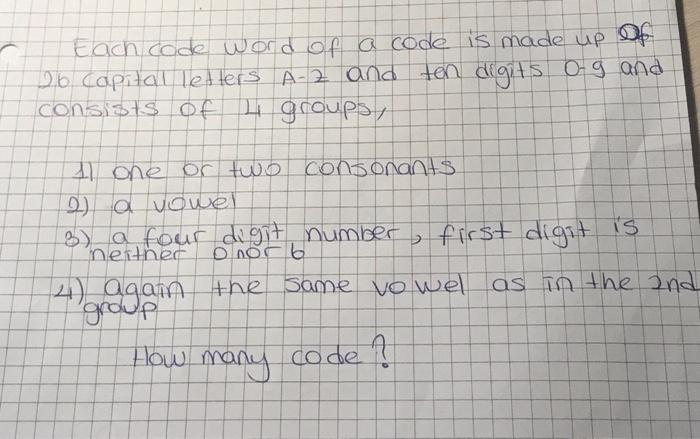 Each code word of a code is made up of
26 capital letters A-Z and ten digits 0-9 and
consists of 4 groups,
1) one or two consonants
2) a vowel
3) a four digit number, first digit is
neither 0 nor 6
4) again the same vowel as in the 2nd
group
How many code?